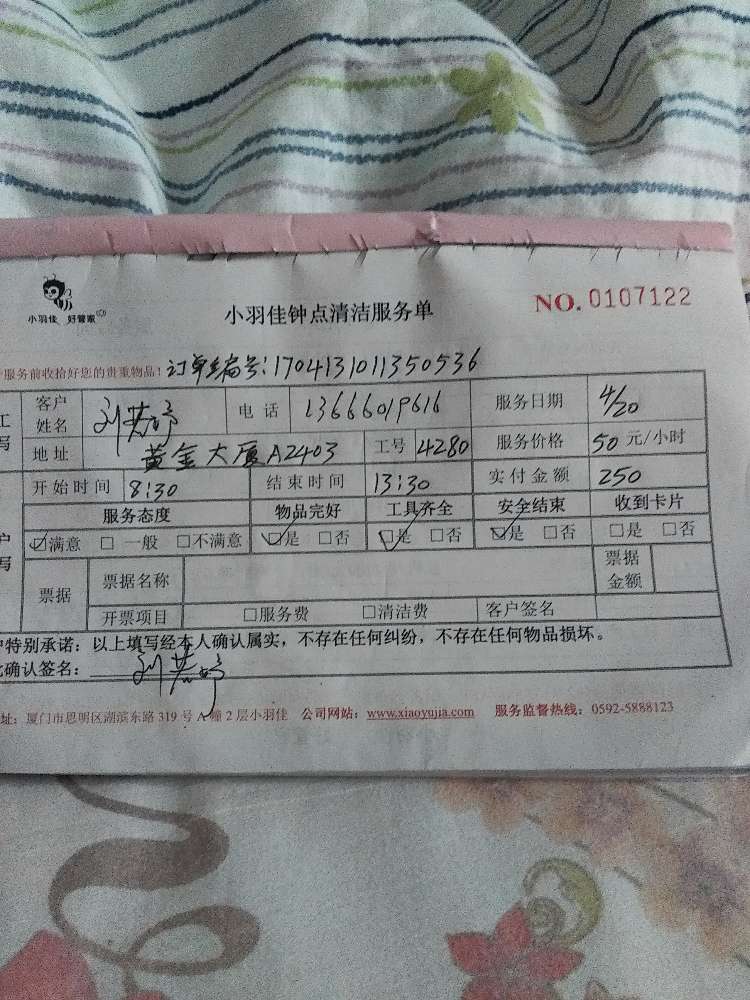 小羽佳 好管家
小羽佳钟点清洁服务单
NO. 0107122
服务前收拾好您的贵重物品! 订单编号:1704131011350536
工 客户姓名 刘 婷 电话 13666019616 服务日期 4/20
写 地址 黄金大厦A2403 工号 4280 服务价格 50 元/小时
开始时间 8:30 结束时间 13:30 实付金额 250
服务态度 物品完好 工具齐全 安全结束 收到卡片
户 ☑满意 □ 一般 □不满意 ☑是 □否 ☑是 □否 ☑是 □否 □是 □否
写 票据 票据名称 票据金额
开票项目 □服务费 □清洁费 客户签名
户特别承诺:以上填写经本人确认属实,不存在任何纠纷,不存在任何物品损坏。
此确认签名: 刘 婷
址:厦门市思明区湖滨东路 319 号 A 幢 2 层小羽佳 公司网站:www.xiaoyujia.com 服务监督热线:0592-5888123